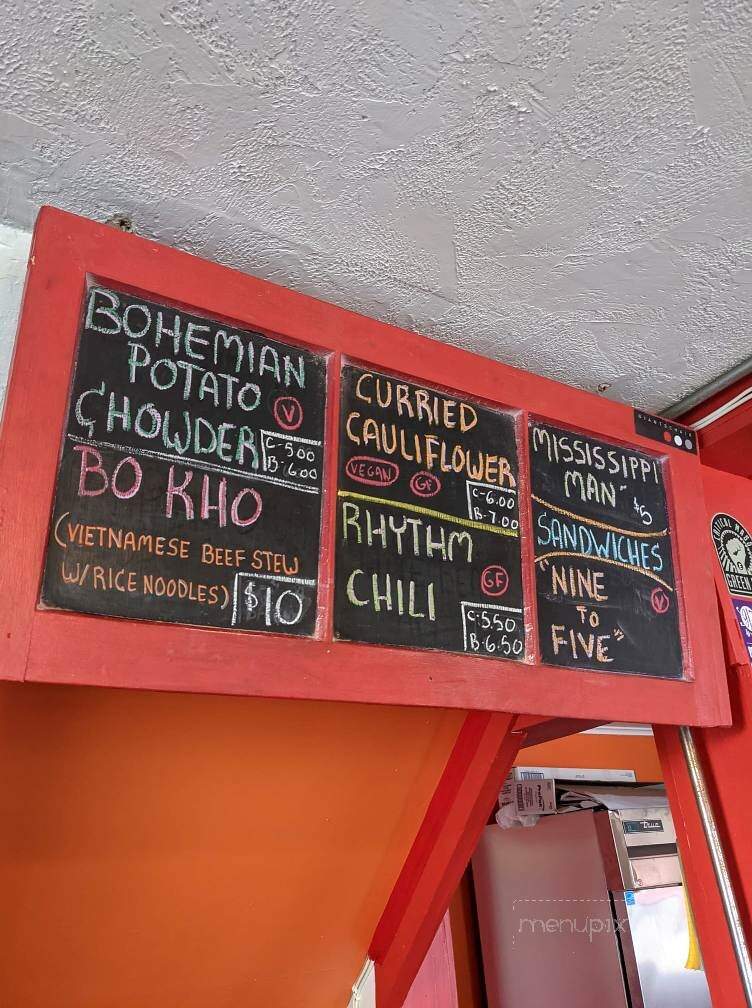 BOHEMIAN
POTATO
CHOWDER
V
C-5.00
B-6.00
BO KHO
(VIETNAMESE BEEF STEW
W/ RICE NOODLES)
$10
CURRIED
CAULIFLOWER
VEGAN GF
C-6.00
B-7.00
RHYTHM
CHILI
GF
C-5.50
B-6.50
MISSISSIPPI
MAN" $5
SANDWICHES
"NINE
TO
FIVE"
V
GREEN
True
menupix